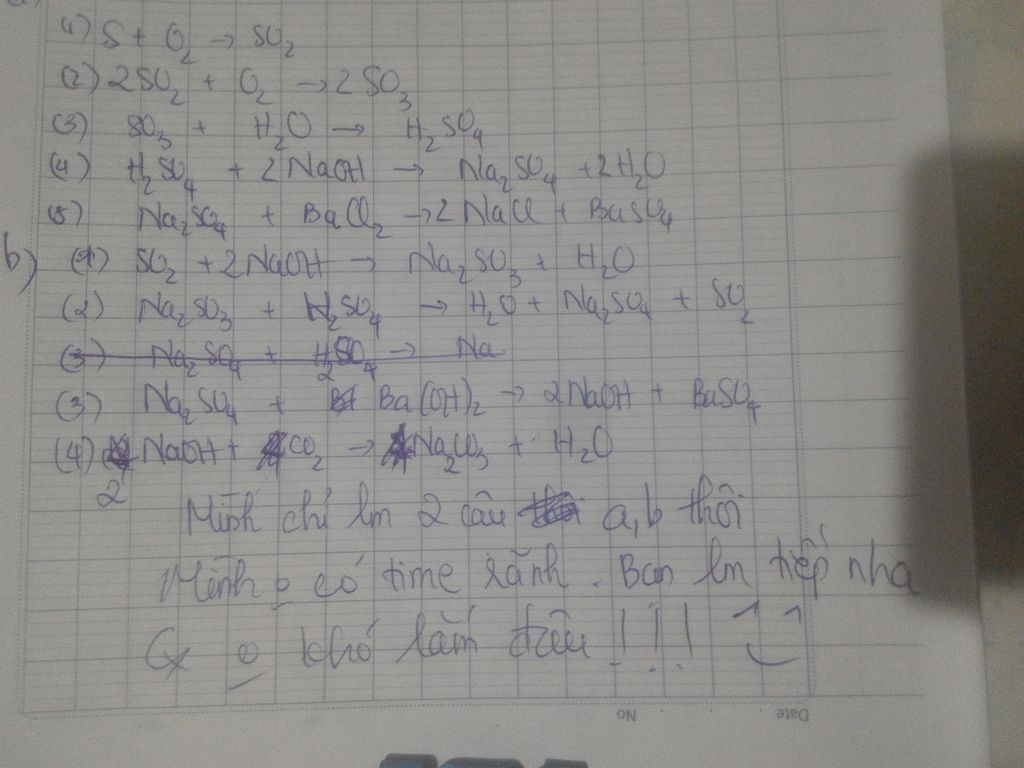 a)
1) S + O2 → SO2
(2) 2SO2 + O2 → 2SO3
(3) SO3 + H2O → H2SO4
(4) H2SO4 + 2NaOH → Na2SO4 + 2H2O
(5) Na2SO4 + BaCl2 → 2NaCl + BaSO4
b) (1) SO2 + 2NaOH → Na2SO3 + H2O
(2) Na2SO3 + H2SO4 → H2O + Na2SO4 + SO2
(3) Na2SO4 + H2SO4 → Na
(3) Na2SO4 + Ba(OH)2 → 2NaOH + BaSO4
(4) 2 NaOH + CO2 → Na2CO3 + H2O
Mình chỉ lm 2 câu a, b thôi
Mình o có time rảnh. Bạn lm tiếp nha
Cx o khó lắm đâu !!!
No
Date